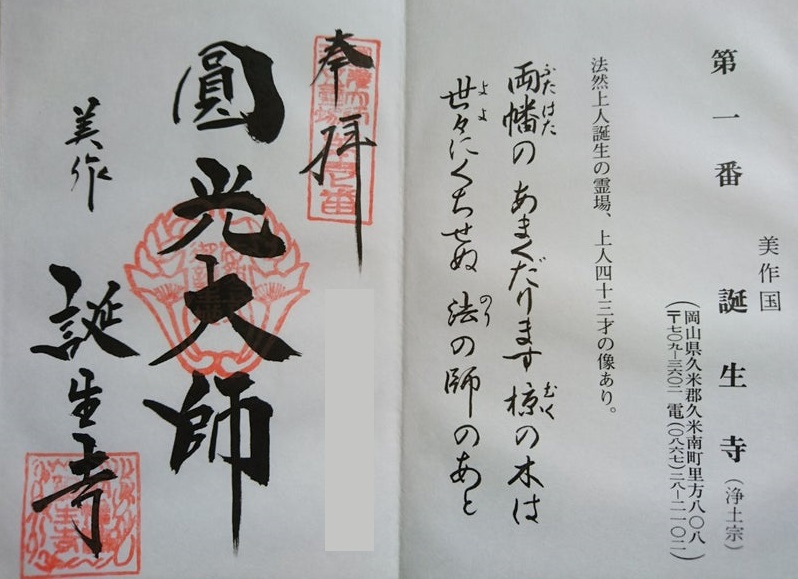 第一番
美作国
誕生寺（浄土宗）
（岡山県久米郡久米南町里方八〇八
〒七〇九―三六〇二 電（〇八六七）二八―二一〇二）
法然上人誕生の霊場、上人四十三才の像あり。
両幡の あまくだります 椋の木は
ふたはた
むく
世々にくちせぬ 法の師のあと
よよ
のり
奉拝
圓光大師
美作
誕生寺